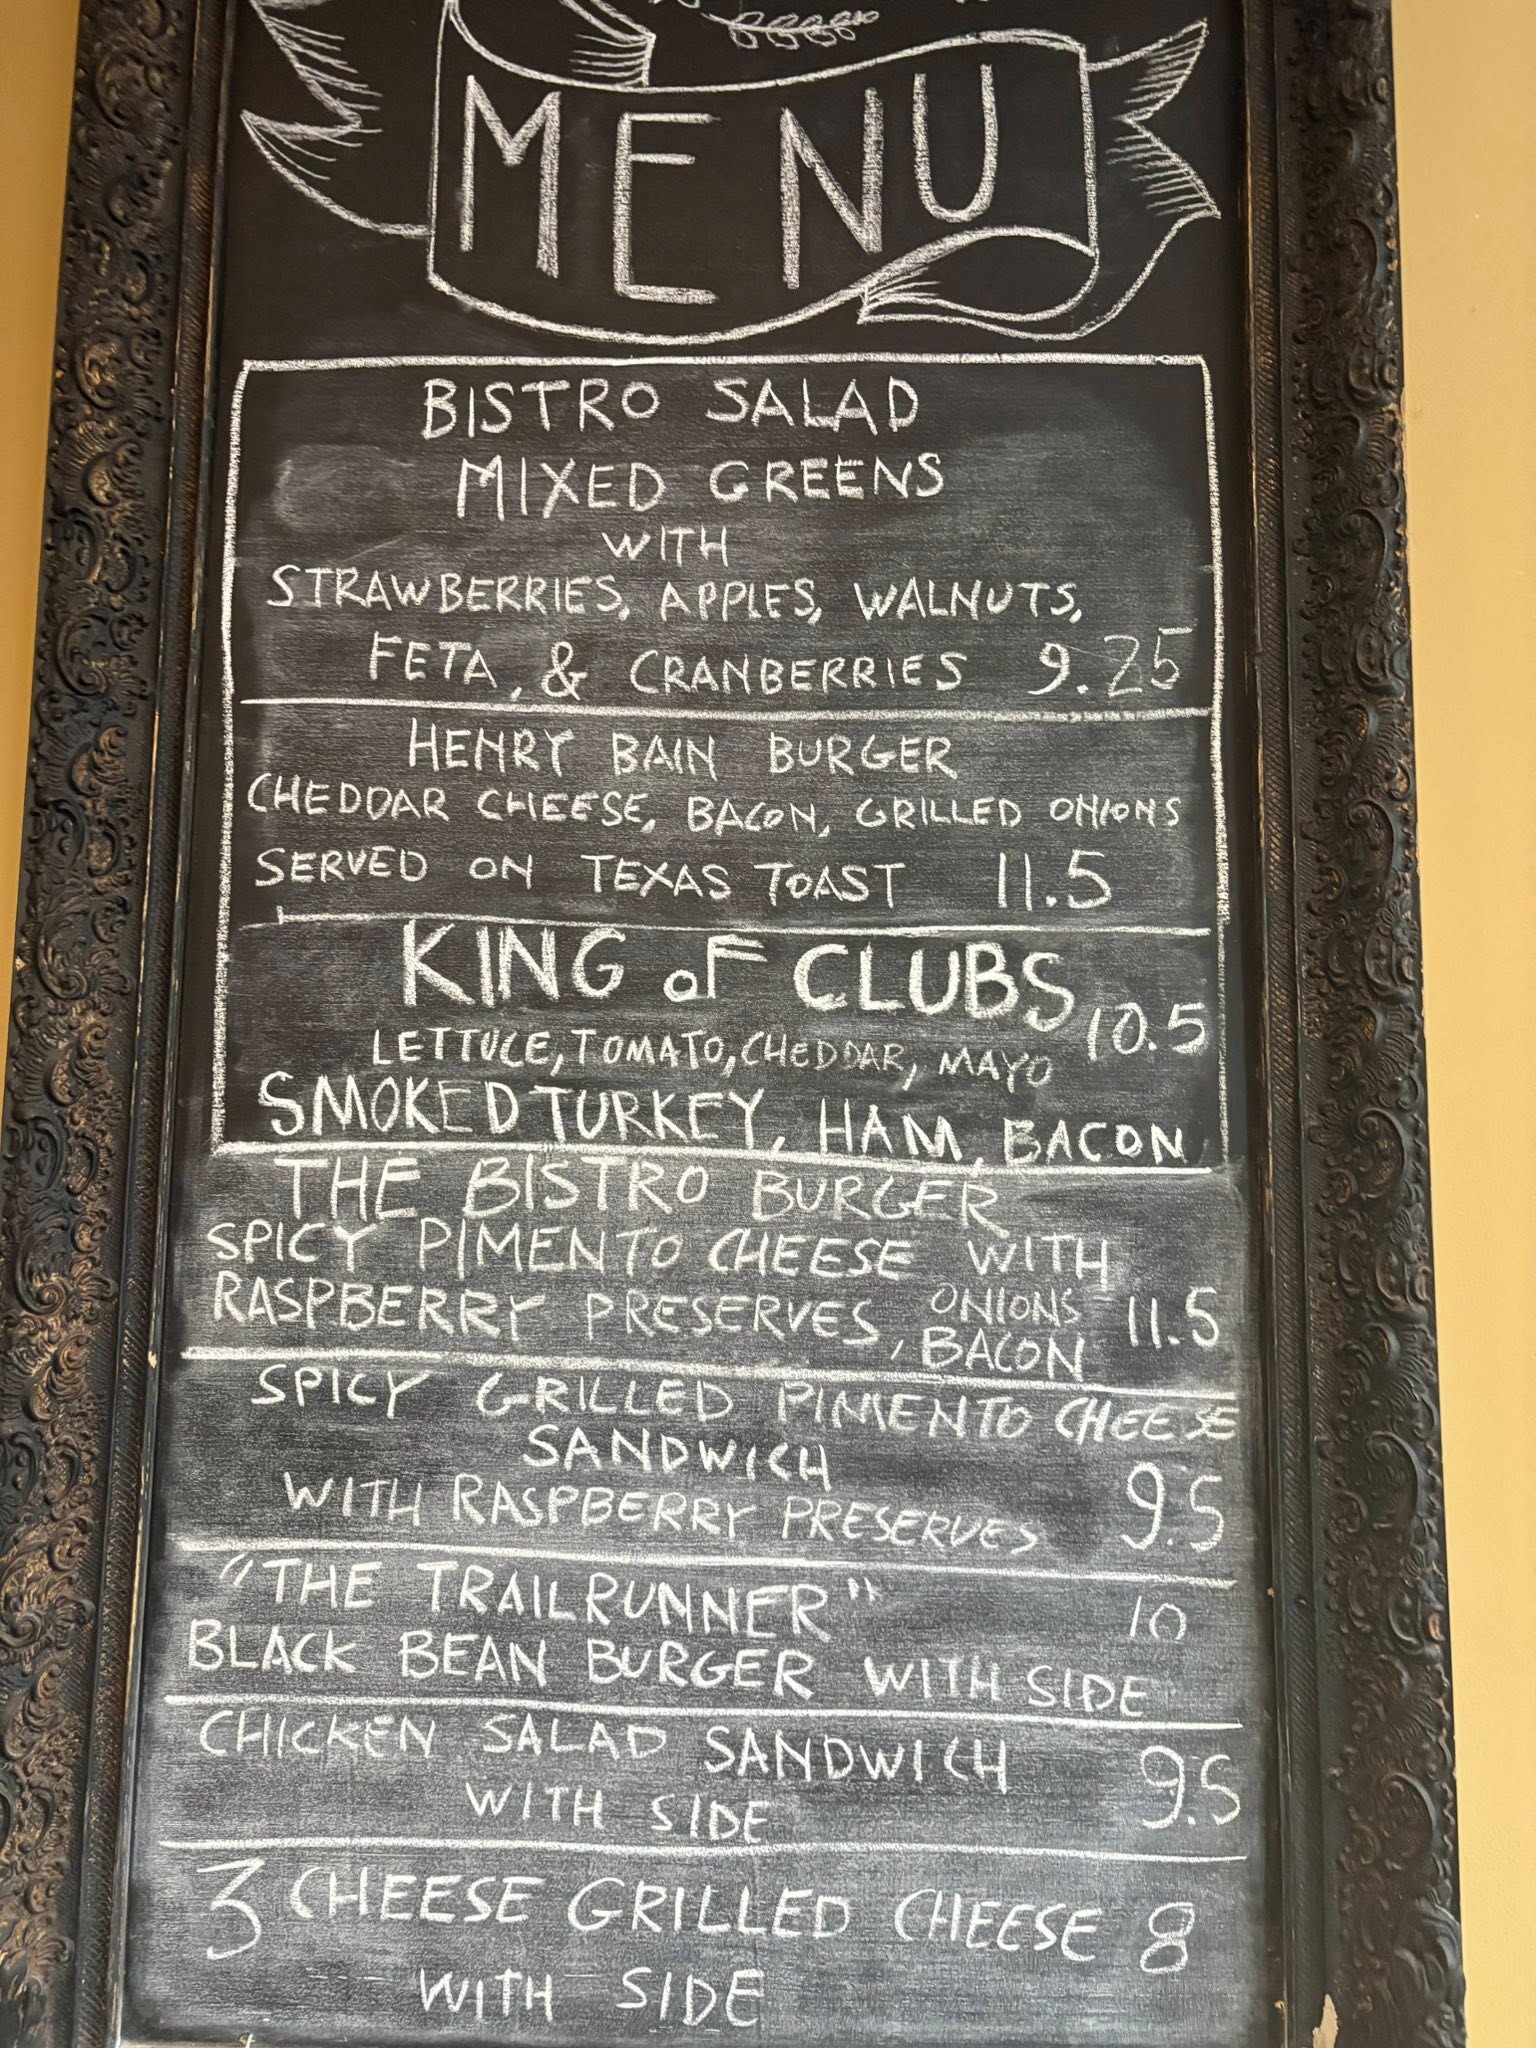 MENU
BISTRO SALAD
MIXED GREENS
WITH
STRAWBERRIES, APPLES, WALNUTS,
FETA, & CRANBERRIES 9.25
HENRY BAIN BURGER
CHEDDAR CHEESE, BACON, GRILLED ONIONS
SERVED ON TEXAS TOAST 11.5
KING OF CLUBS
10.5
LETTUCE, TOMATO, CHEDDAR, MAYO
SMOKED TURKEY, HAM, BACON
THE BISTRO BURGER
SPICY PIMENTO CHEESE WITH
RASPBERRY PRESERVES, ONIONS 11.5
BACON
SPICY GRILLED PIMENTO CHEESE
SANDWICH
WITH RASPBERRY PRESERVES 9.5
"THE TRAILRUNNER" 10
BLACK BEAN BURGER WITH SIDE
CHICKEN SALAD SANDWICH 9.5
WITH SIDE
3 CHEESE GRILLED CHEESE 8
WITH SIDE